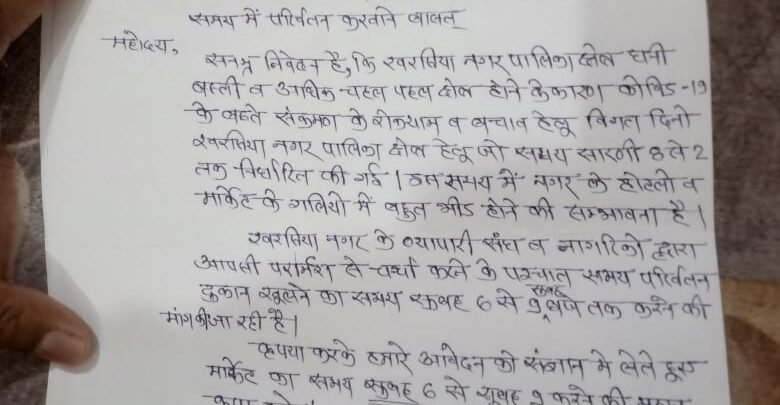 समय में परिर्वतन करवाने बावत्
महोदय,
सनम्र निवेदन है, कि खरसिया नगर पालिका क्षेत्र घनी
बस्ती व अधिक चहल पहल क्षेत्र होने के कारण कोविड-19
के बढते संक्रमण के रोकथाम व बचाव हेतु विगत दिनो
खरसिया नगर पालिका क्षेत्र हेतु जो समय सारणी 8 से 2
तक निर्धारित की गई । इस समय में नगर के होटलो व
मार्केट के गलियो में बहुत भीड होने की सम्भावना है ।
खरसिया नगर के व्यापारी संघ व नागरिको द्वारा
आपसी परार्मश से चर्चा करने के पश्चात समय परिर्वतन
दुकान खुलने का समय सुबह 6 से सुबह 9 बजे तक करने की
मांग की जा रही है ।
कृपया करके हमारे आवेदन को संज्ञान मे लेते हुए
मार्केट का समय सुबह 6 से सुबह 9 करने की